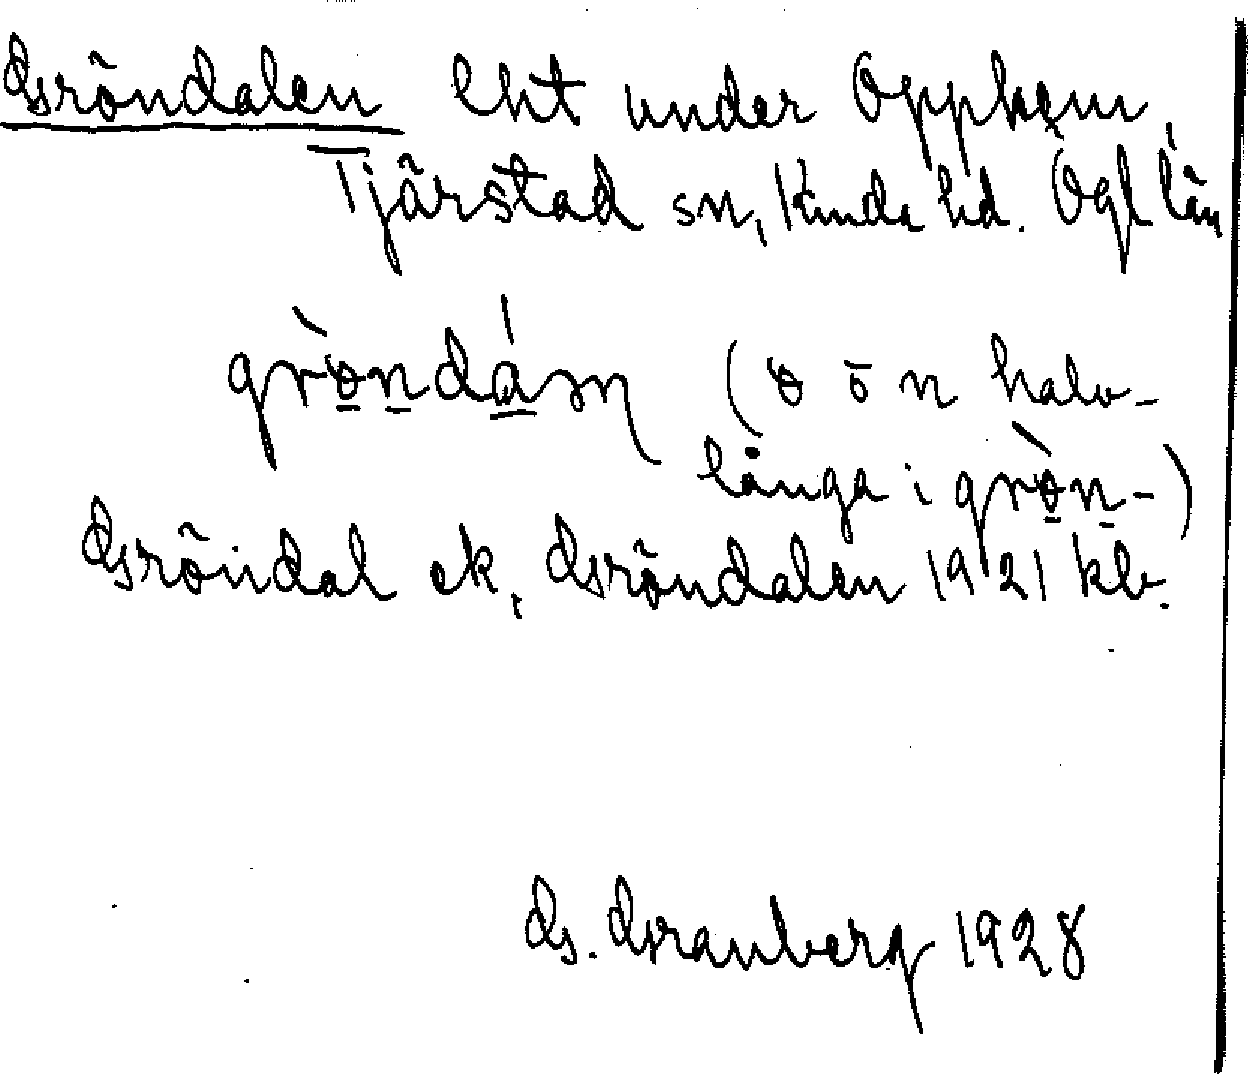 Gröndalen lht under Opphem,
Tjärstad sn, Kinda hd. Ögl län
grö̀ndá̱ɷn (ō n halv-
långa i grö̀n-)
Gröndal ek, Gröndalen 1921 kb.
G. Granberg 1928